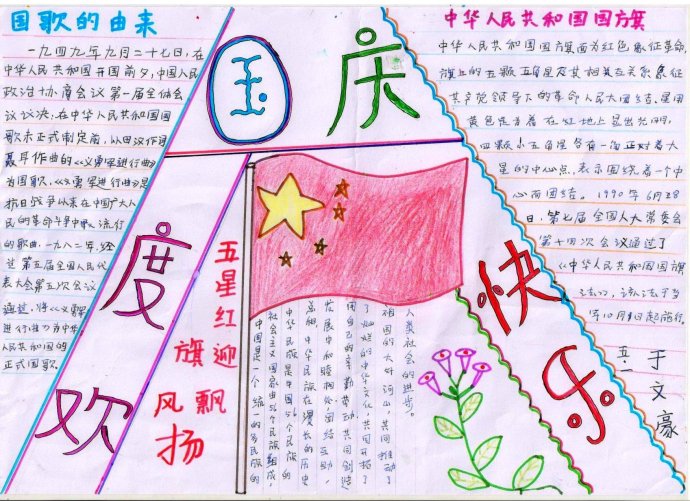 国歌的由来
一九四九年九月二十七日,在
中华人民共和国开国前夕,中国人民
政治协商会议第一届全体会
议议决:在中华人民共和国国
歌未正式制定前,以田汉作词
聂耳作曲的《义勇军进行曲》
为国歌,《义勇军进行曲》是
抗日战争以来在中国广大人
民的革命斗争中最流行
的歌曲。一九八二年,经
过第五届全国人民代
表大会第五次会议
通过,将《义勇军
进行曲》为中华
人民共和国的
正式国歌。
国庆
度欢
快乐
五星红
旗迎
风飘
扬
中国是一个统一的多民族的
社会主义国家由56个民族组成,
中华民族是中国56个民族的
总称,中华民族在漫长的历史
发展中和睦相处,团结互助,
用自己的辛勤劳动,共同创造
了灿烂的中华文化,共同开拓了
祖国的大好河山,共同推动了
人类社会的进步。
中华人民共和国国旗
中华人民共和国国旗面为红色象征革命,
旗上的五颗五角星及其相互关系象征
共产党领导下的革命人民大团结。星用
黄色是为着在红地上显出光明,
四颗小五角星各有一角正对着大
星的中心点,表示围绕着一个中
心而团结。1990年6月28
日,第七届全国人大常委会
第十四次会议通过了
《中华人民共和国国旗
法》,该法于当
年10月1日起施行。
五一
于文豪